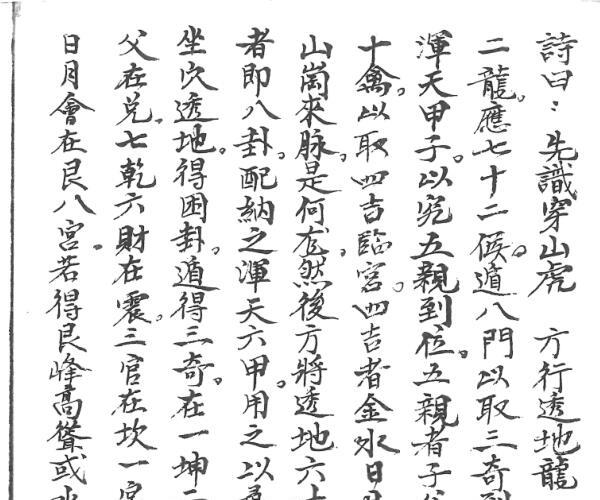 詩曰：先識穿山虎　方行透地龍
二龍。應七十二候。遁八門以取三奇
渾天甲子。以究五親到位。五親者子
十禽。以取四吉臨宮。四吉者金水日
山崗來脉。是何龙。然後方將透地六
者即八卦。配納之渾天六甲。用之以
坐穴透地。得困卦。遁得三奇。在一坤二
父在兌。七乾六財在震。三官在坎一宮
日月會在艮八宮。若得艮峰高聳或